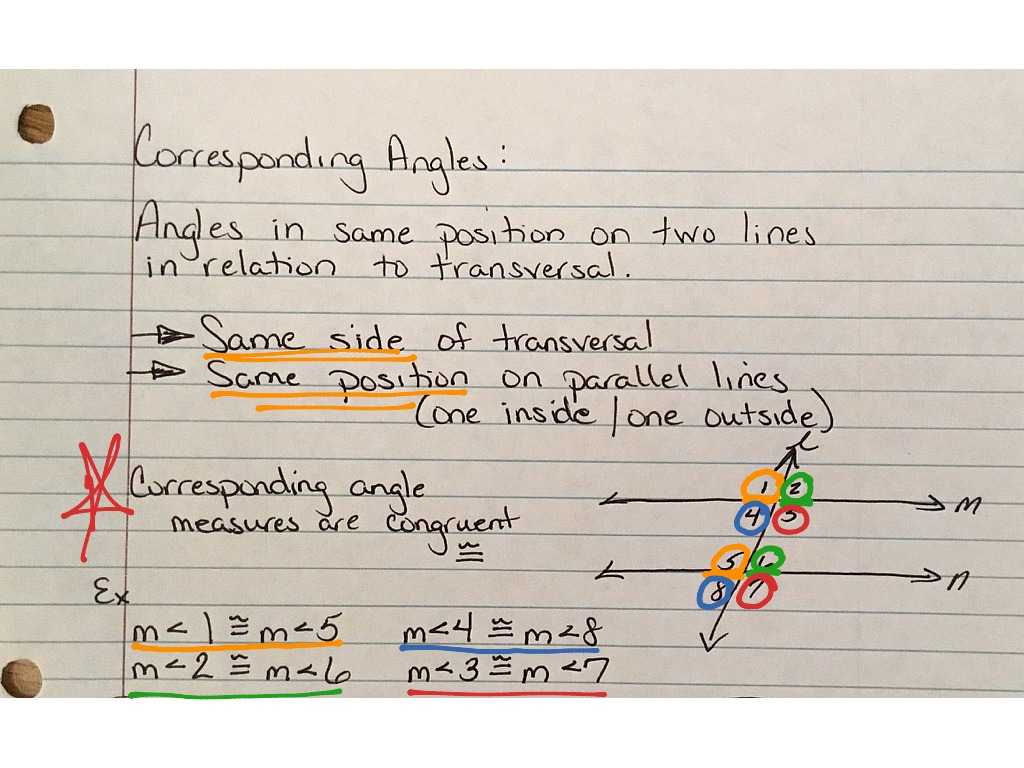 Corresponding Angles:
Angles in same position on two lines
in relation to transversal.
Same side of transversal
Same position on parallel lines
(one inside/one outside)
Corresponding angle
measures are congruent
≅
t
1 2
m
4 3
5 6
n
8 7
Ex
m<1 ≅ m<5 m<4 ≅ m<8
m<2 ≅ m<6 m<3 ≅ m<7